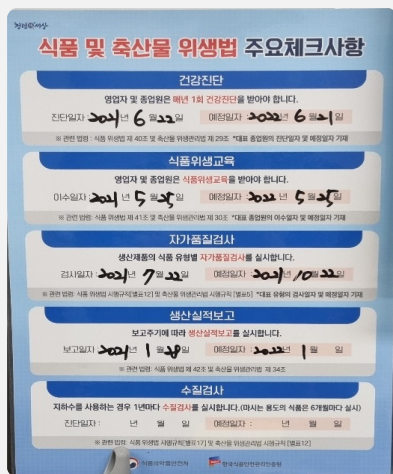 식품 및 축산물 위생법 주요체크사항
건강진단
영업자 및 종업원은 매년 1회 건강진단을 받아야 합니다.
진단일자 : 2021년 6월 22일 예정일자 : 2022년 6월 21일
※ 관련 법령 : 식품 위생법 제 40조 및 축산물 위생관리법 제 29조 *대표 종업원의 진단일자 및 예정일자 기재
식품위생교육
영업자 및 종업원은 식품위생교육을 받아야 합니다.
이수일자 : 2021년 5월 25일 예정일자 : 2022년 5월 25일
※ 관련 법령 : 식품 위생법 제 41조 및 축산물 위생관리법 제 30조 *대표 종업원의 이수일자 및 예정일자 기재
자가품질검사
생산제품의 식품 유형별 자가품질검사를 실시합니다.
검사일자 : 2021년 7월 22일 예정일자 : 2021년 10월 22일
※ 관련 법령 : 식품 위생법 시행규칙[별표12] 및 축산물 위생관리법 시행규칙 [별표5] *대표 유형의 검사일자 및 예정일자 기재
생산실적보고
보고주기에 따라 생산실적보고를 실시합니다.
보고일자 : 2021년 1월 28일 예정일자 : 2022년 1월 일
※ 관련 법령 : 식품 위생법 제 42조 및 축산물 위생관리법 제 34조
수질검사
지하수를 사용하는 경우 1년마다 수질검사를 실시합니다.(마시는 용도의 식품은 6개월마다 실시)
진단일자 : 년 월 일 예정일자 : 년 월 일
※ 관련 법령 : 식품 위생법 시행규칙[별표17] 및 축산물 위생관리법 시행규칙 [별표12]
식품의약품안전처 한국식품안전관리인증원